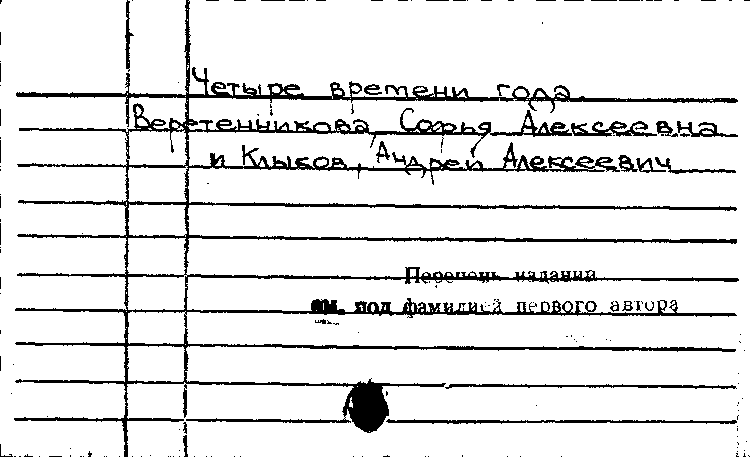 Четыре времени года.
Веретенникова, Софья Алексеевна
и Клыков, Андрей Алексеевич
Перечень изданий
см. под фамилией первого автора